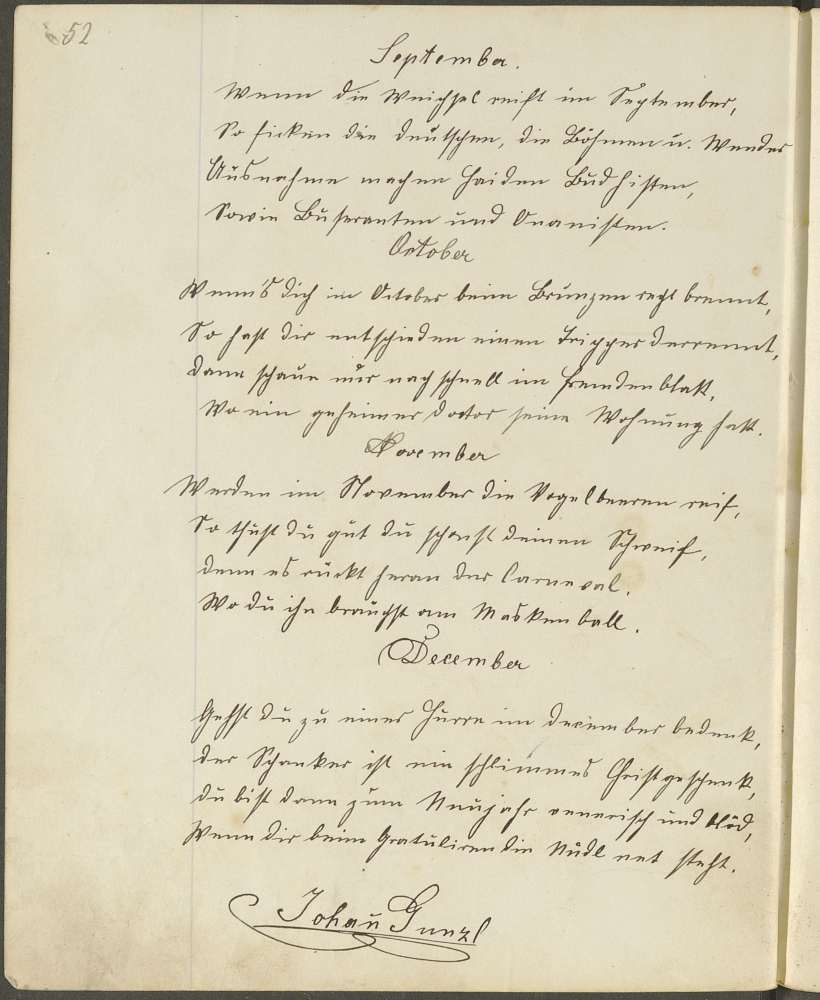 52
September.
Wenn die Weichsel reift im September,
So ficken die Deutschen, die Böhmen u. Wender
Ausnahme machen Haiden Budhisten,
Sowie Buseranten und Onanisten.
October
Wenn's dich im October beim Brunzen recht brennt,
So hast dir entschieden einen Tripper derrennt,
dann schaue nur nach schnell im Fremdenblatt,
Wo ein geheimer Doctor seine Wohnung hatt.
November
Werden im November die Vogelbeeren reif,
So thust du gut du schonst deinen Schweif,
denn es rückt heran der Carneval,
Wo du ihn brauchst am Maskenball.
December
Gehst du zu einer Hurre im December bedenk,
der Schanker ist ein schlimmes Christgeschenk,
du bist dann zum Neujahr venerisch und blöd,
Wenn dir beim Gratuliren die Nudl net steht.
Johan Gunzl